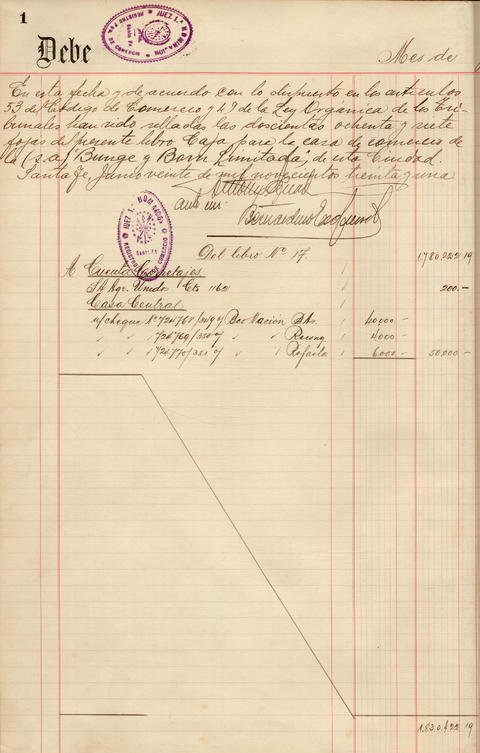 1
Debe
Mes de
JUEZ 1.ª NOMINACION
REGISTRO PCO. DE COMERCIO
En esta fecha y de acuerdo con lo dispuesto en los artículos
53 del Código de Comercio y 49 de la Ley Orgánica de los Tri-
bunales han sido selladas las doscientas ochenta y siete
fojas del presente libro Caja para la casa de comercio de
la (s.a) "Bunge y Born Limitada", de esta Ciudad.
Santa Fe, Junio veinte de mil novecientos treinta y uno
ante mi:
JUEZ 1.ª NOMINACION
SANTA FE
Del libro Nº 17. 1.780,222 19
A Cuenta Corretajes
S/ Agr. Unido Cte 1162 200.-
Casa Central
n/cheque Nº 724768/349 c/ Bco Nación BAs. 40000.-
" " 724769/350 c/ " " 4000.-
" " 724770/351 c/ " " Rafaela 6000.- 50,000.-
1.830.422 19